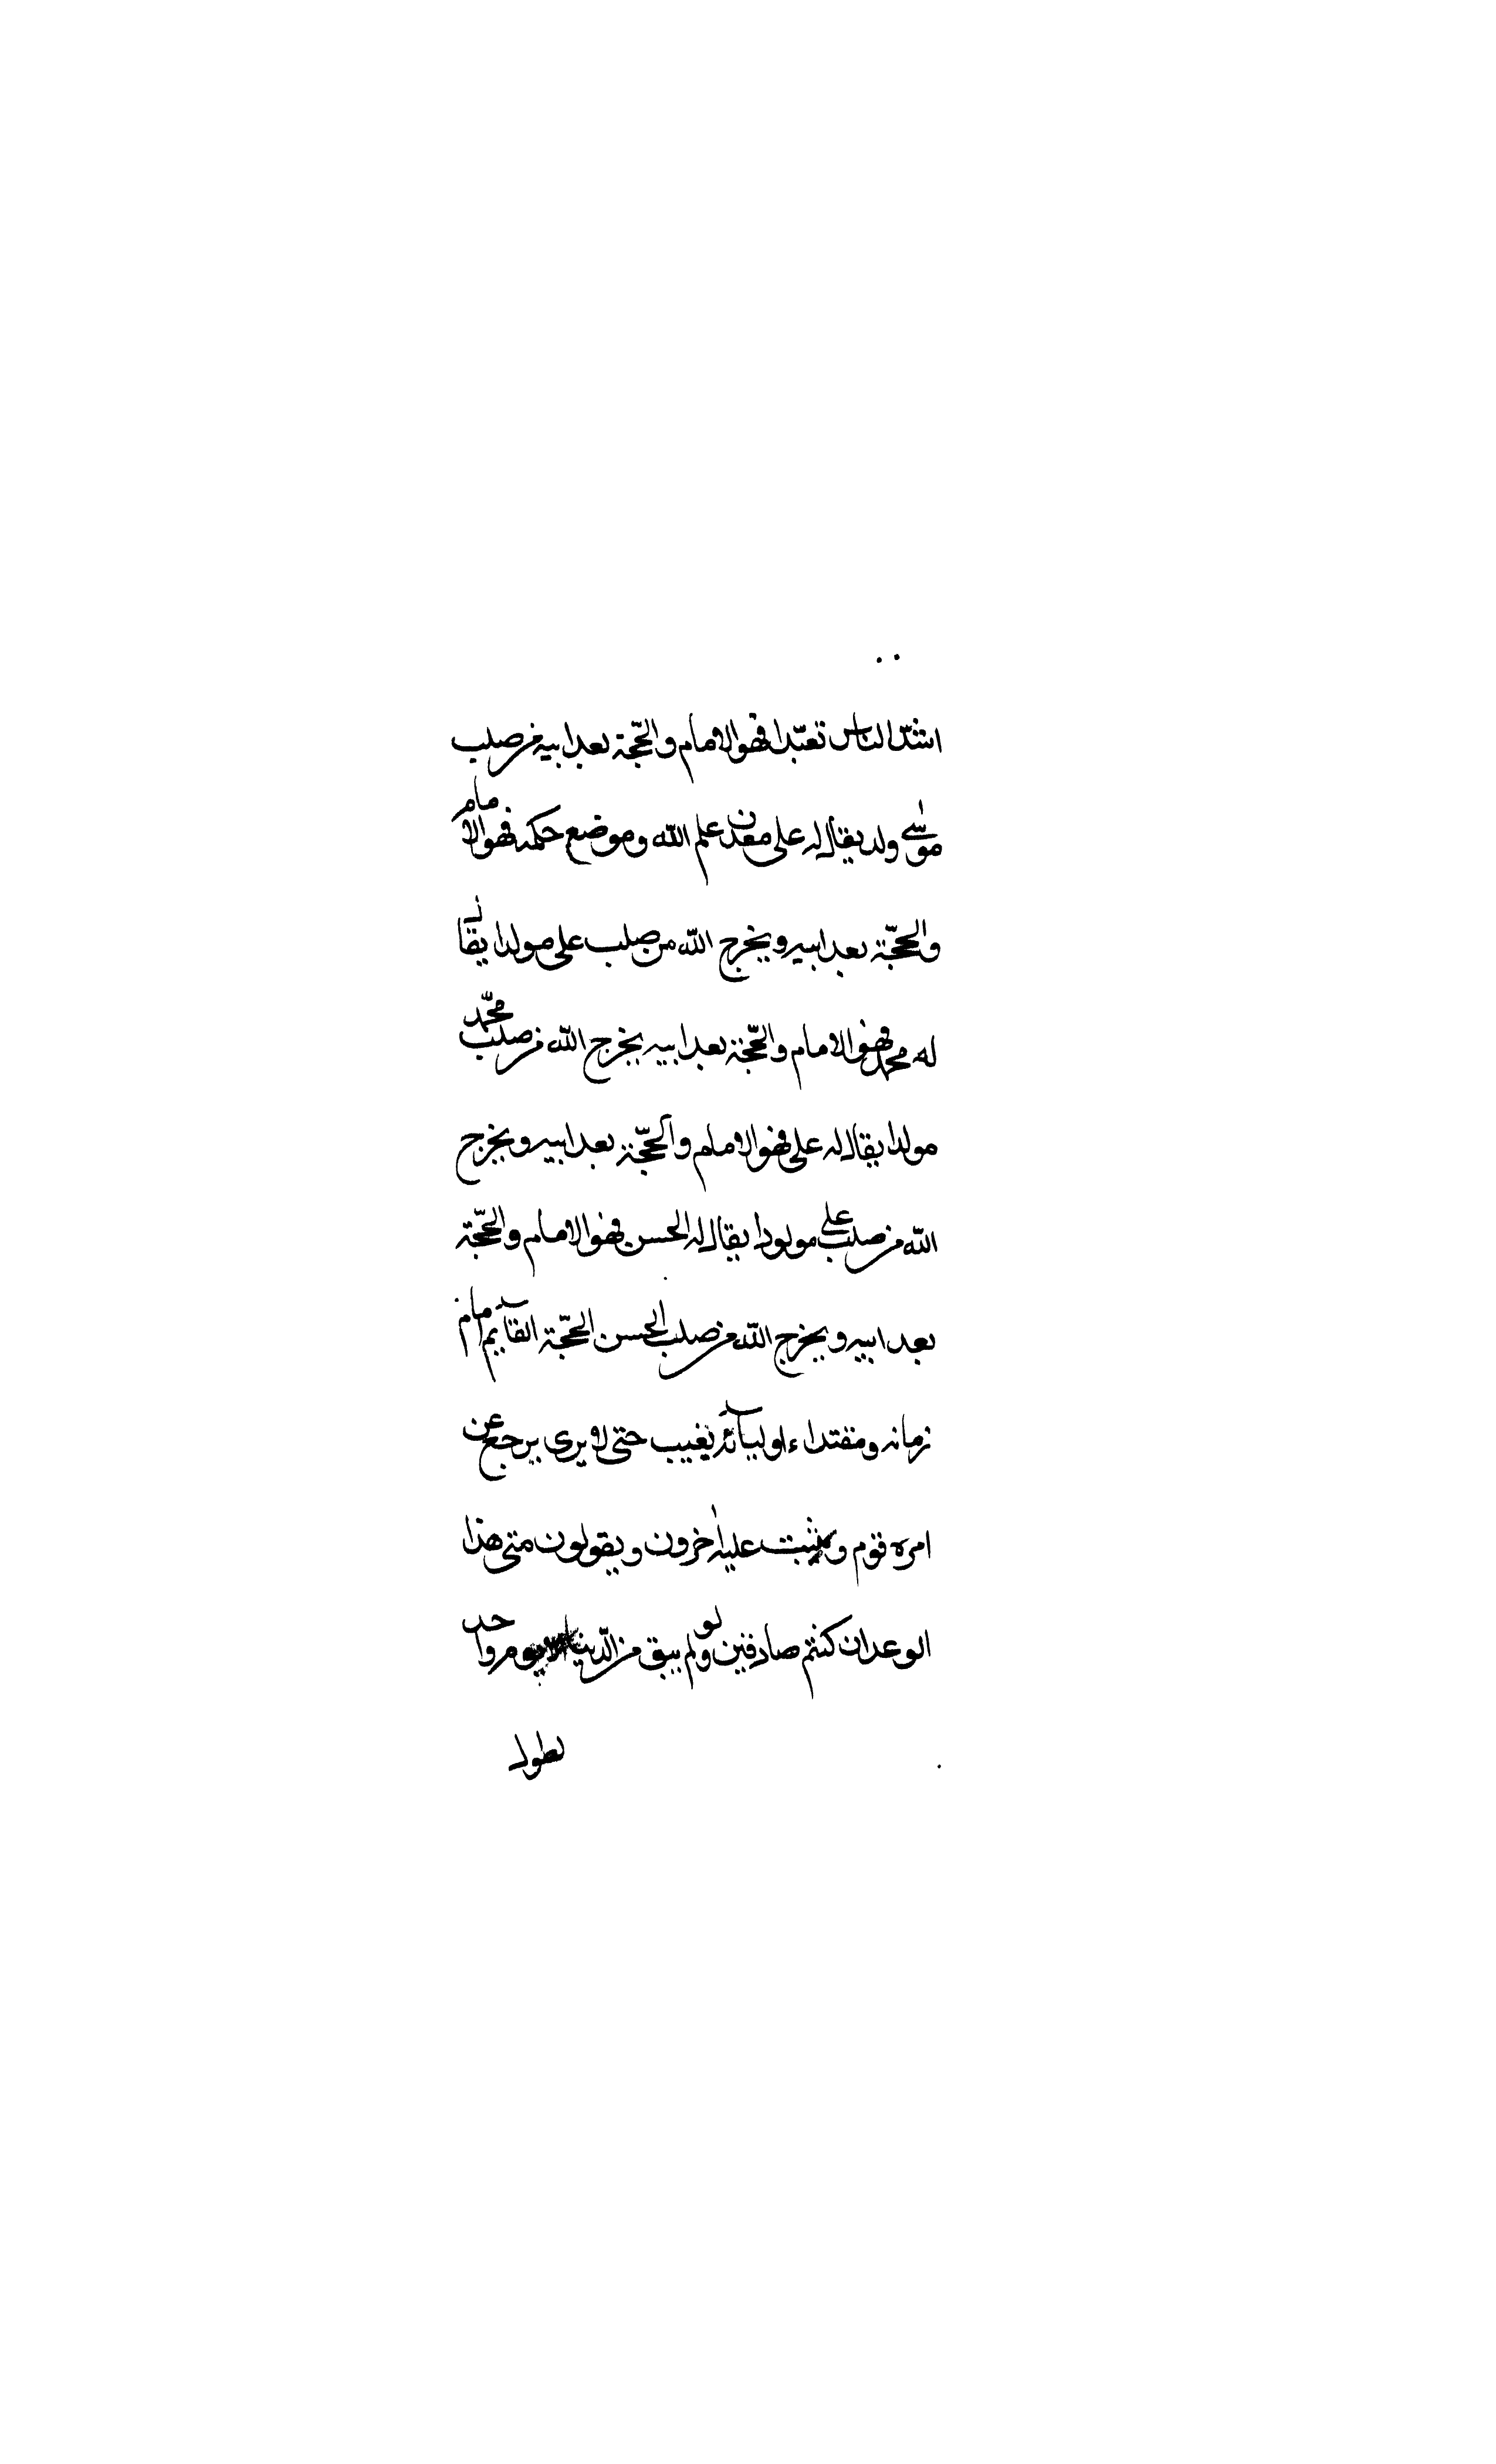 اشدّ الناس تعبّدا فهو الامام والحجّة بعد ابيه من صلب
موسى ولد يقال له على معدن علم الله وموضع حكمه فهو الامام
والحجّة بعد ابيه ويخرج الله من صلب على مولدا يقال
له محمد فهو الامام والحجّة بعد ابيه يخرج الله من صلب محمّد
مولدا يقال له على فهو الامام والحجّة بعد ابيه ويخرج
الله من صلب على مولودا يقال له الحسن فهو الامام والحجّة
بعد ابيه ويخرج الله من صلب الحسن الحجّة القآيم امام
زمانه ومنقتداء اوليآئه يغيب حتى لا يرى يرجع عن
امره قوم و يثبت عليه اخرون ويقولون متى هذا
الوعد ان كنتم صادقين ولو لم يبق من الدّنيا الا يوم واحد
لطول